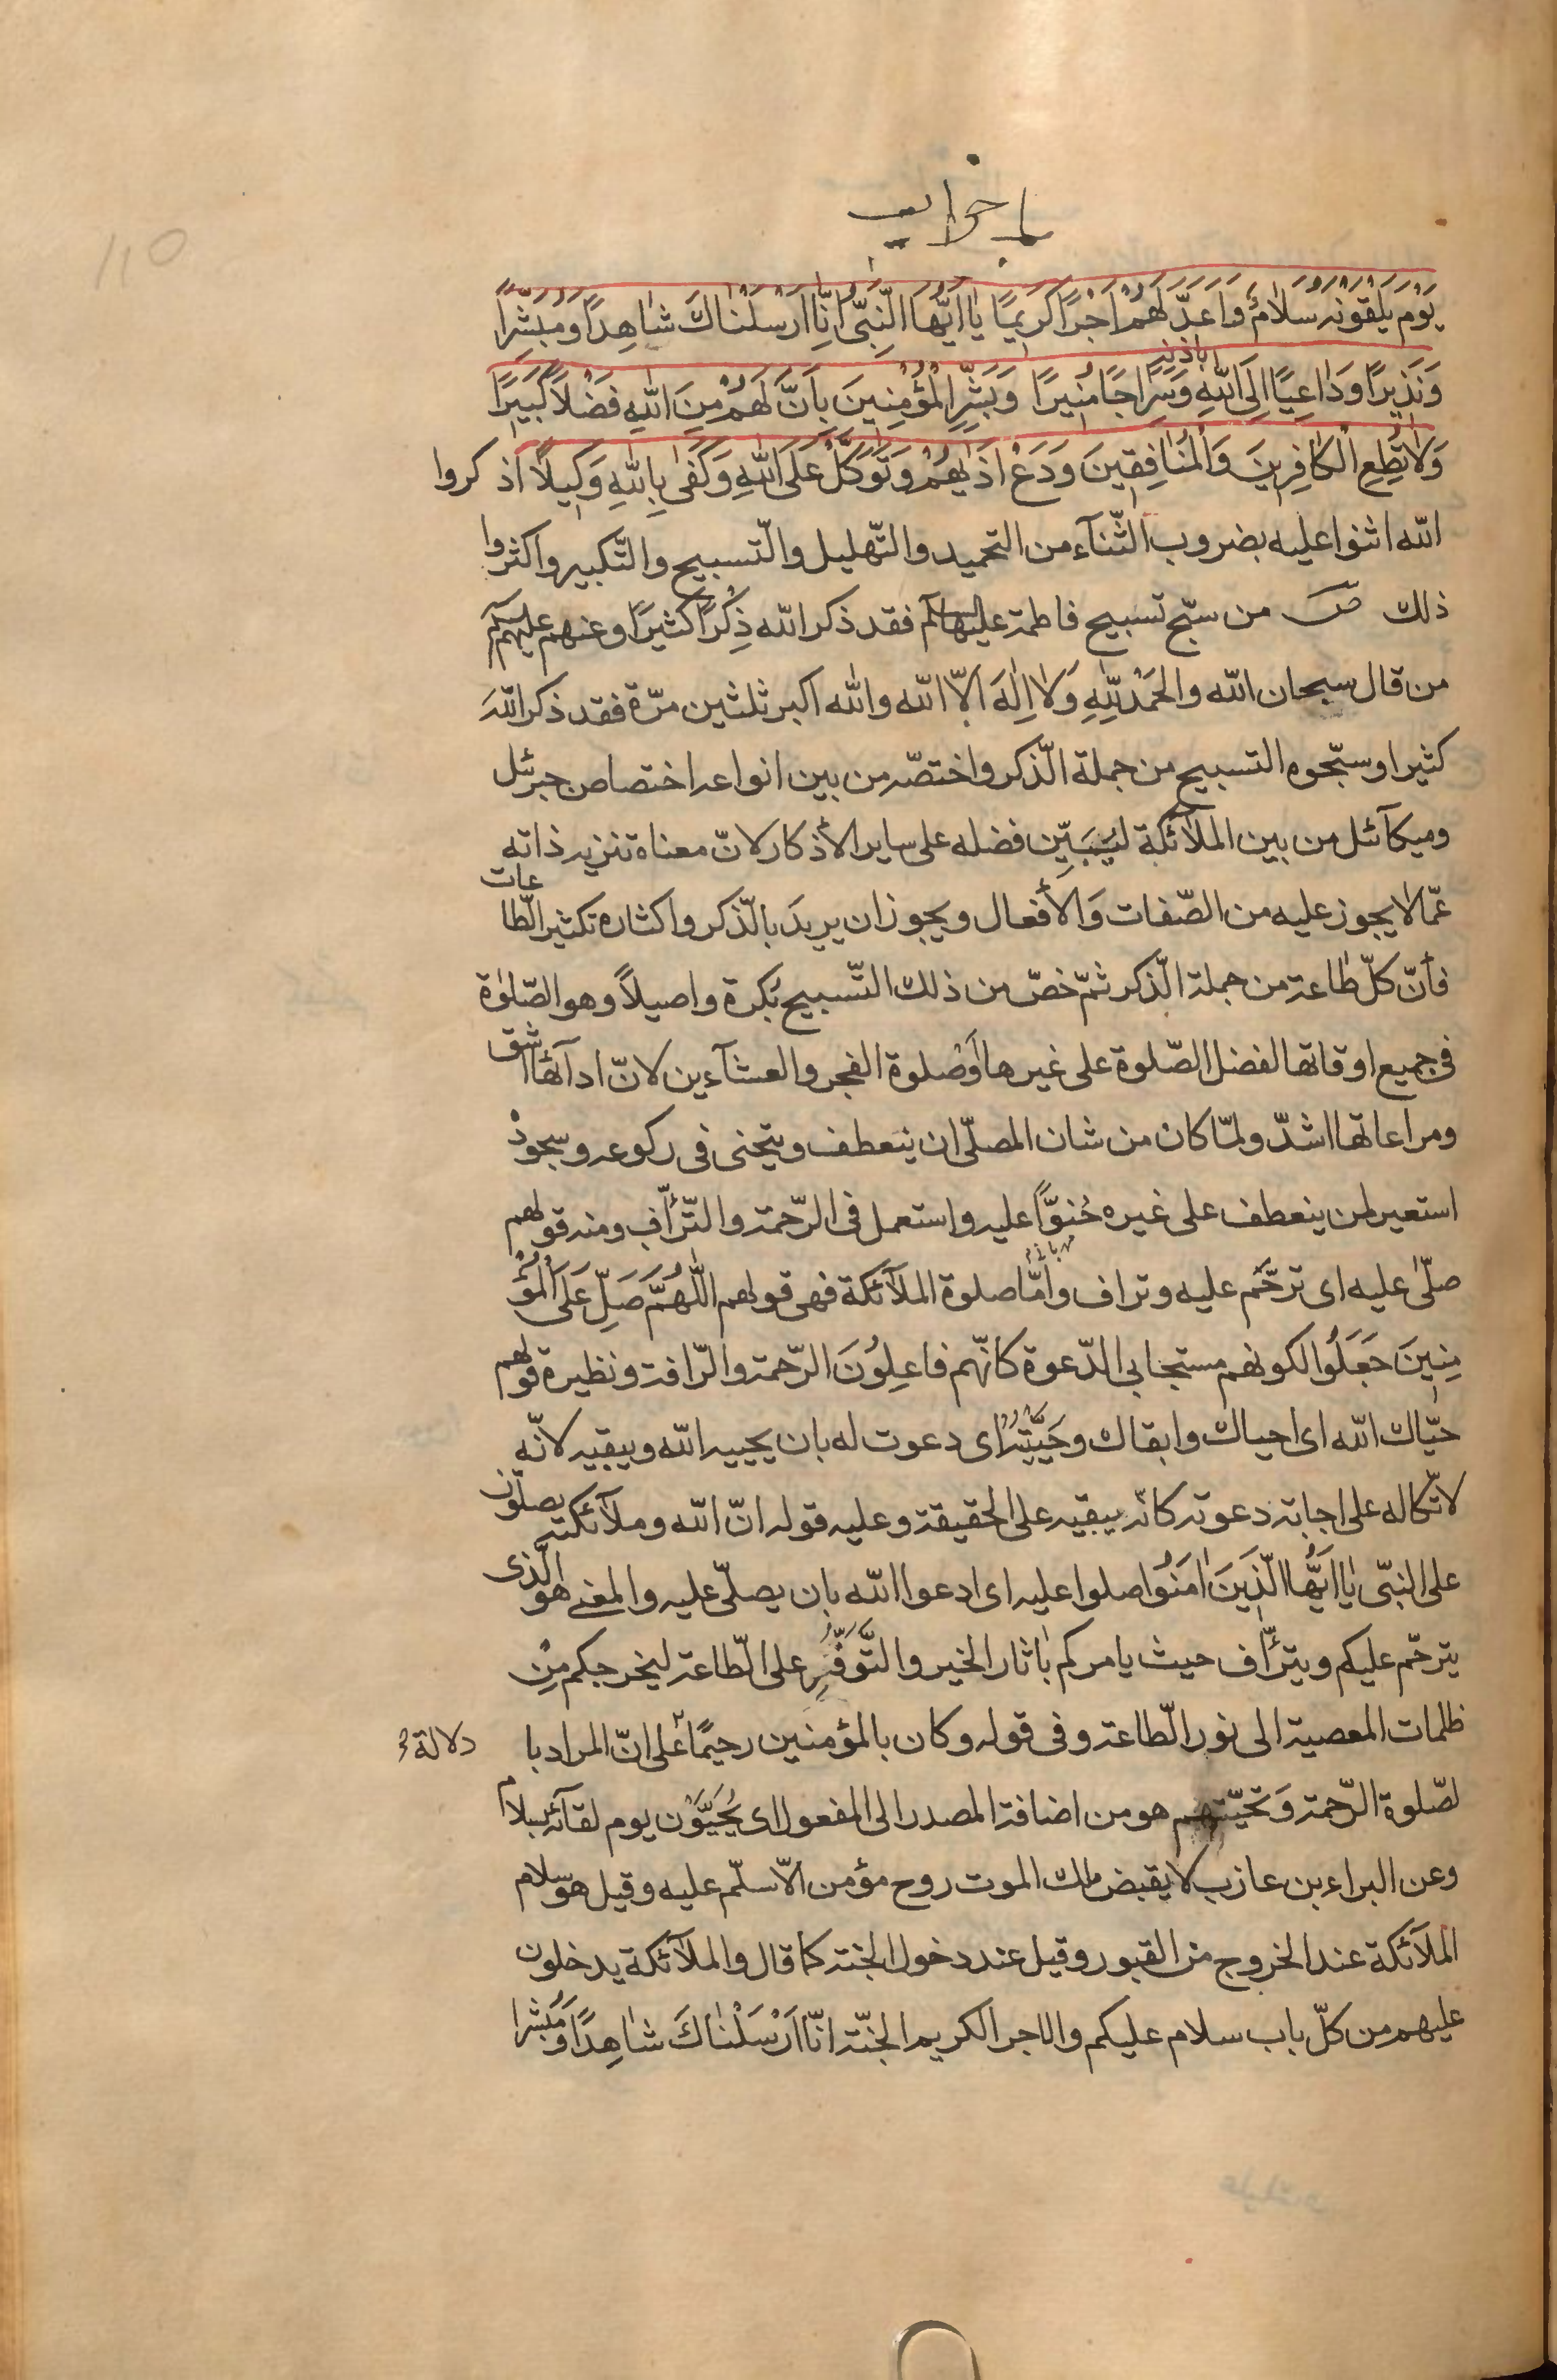 احزاب
110
يَوْمَ يَلْقَوْنَهُ سَلَامٌ وَاَعَدَّ لَهُمْ اَجْرًا كَرِيمًا يَا اَيُّهَا النَّبِىُّ اِنَّا اَرْسَلْنَاكَ شَاهِدًا وَمُبَشِّرًا
وَنَذِيرًا وَدَاعِيًا اِلَى اللّٰهِ بِاِذْنِهِ وَسِرَاجًا مُنِيرًا وَبَشِّرِ الْمُؤْمِنِينَ بِاَنَّ لَهُمْ مِنَ اللّٰهِ فَضْلًا كَبِيرًا
وَلَا تُطِعِ الْكَافِرِينَ وَالْمُنَافِقِينَ وَدَعْ اَذٰيهُمْ وَتَوَكَّلْ عَلَى اللّٰهِ وَكَفٰى بِاللّٰهِ وَكِيلًا اذكروا
اللّه اثنوا عليه بضروب الثّنآء من التحميد والتّهليل والتّسبيح والتّكبير واكثروا
ذلك ص من سبّح تسبيح فاطمة عليها السلم فقد ذكر اللّه ذِكْرًا كثيرًا وعنهم عليهم السلم
من قال سبحان اللّه والحَمْدُ لِلّٰهِ وَلَا اِلٰهَ الّا اللّه واللّه اكبر ثلثين مرّة فقد ذكر اللّهَ
كثيرا وسبّحوه التسبيح من جملة الّذكر واختصّه من بين انواعه اختصاص جبرئل
وميكآئل من بين الملآئكة ليُبَيِّن فضله على ساير الأذكار لانّ معناه تنزيه ذاته
عمّا لا يجوز عليه من الصّفات وَالأفعال ويجوز ان يريدَ بالّذكر واكثاره تكثير الطّاعات
فأنّ كلّ طاعة من جملة الّذكر ثمّ خصّ من ذلك التّسبيح بُكرة واصيلاً وهو الصّلوٰة
فى جميع اوقاتها لفضل الصّلوة على غيرها أوْ صلوة الفجر والعشآءين لانّ ادآئها اشق
ومراعاتها اشدّ ولمّا كان من شان المصلّى ان ينعطف ويتحنى فى ركوعه وسجوده
استعير لمن ينعطف على غيره حُنوًّا عليه واستعمل فى الرّحمة والتّرأّف ومنه قولهم
صلّى عليه اى ترحّم عليه وتراف وأمّا صلوة الملآئكة فهى قولهم اللّٰهُمَّ صَلِّ عَلَى الْمُؤْ
مِنِينَ جَعَلُوا لكونهم مستجابى الدّعوة كانّهم فاعِلُونَ الرّحمة والرّافة ونظيره قولهم
حيّاك اللّه اى احياك وابقاك وحَيَّيْتُهُ اى دعوت له بان يحييه اللّه ويبقيه لانّه
لاتّكاله على اجابة دعوته كانّه يبقيه على الحقيقة وعليه قوله انّ اللّه وملآئكته يصلّون
على النبّى يَا اَيُّهَا الَّذِينَ اٰمَنُوا صلوا عليه اى ادعوا اللّه بان يصلّى عليه والمعنى هو الّذى
يترحّم عليكم ويترأّف حيث يامركم باثار الخير والتَّوَفُّرِ على الّطاعة ليخرجكم مِنْ
ظلمات المعصية الى نور الّطاعة وفى قوله وكان بالمؤمنين رحيمًا على انّ المراد با
دلالة
لصّلوة الرّحمة وَتحيّتهم هو من اضافة المصدر الى المفعول اى يُحَيَّوْن يوم لقآئه بسلام
وعن البراء بن عازب لا يقبض ملك الموت روح مؤمن الّا سلّم عليه وقيل هو سلام
الملآئكة عند الخروج من القبور وقيل عند دخول الجنّة كما قال والملآئكة يدخلون
عليهم من كلّ باب سلام عليكم والاجر الكريم الجنّة انّا اَرْسَلْنَاكَ شاهِدًا وَمُبَشِّرًا